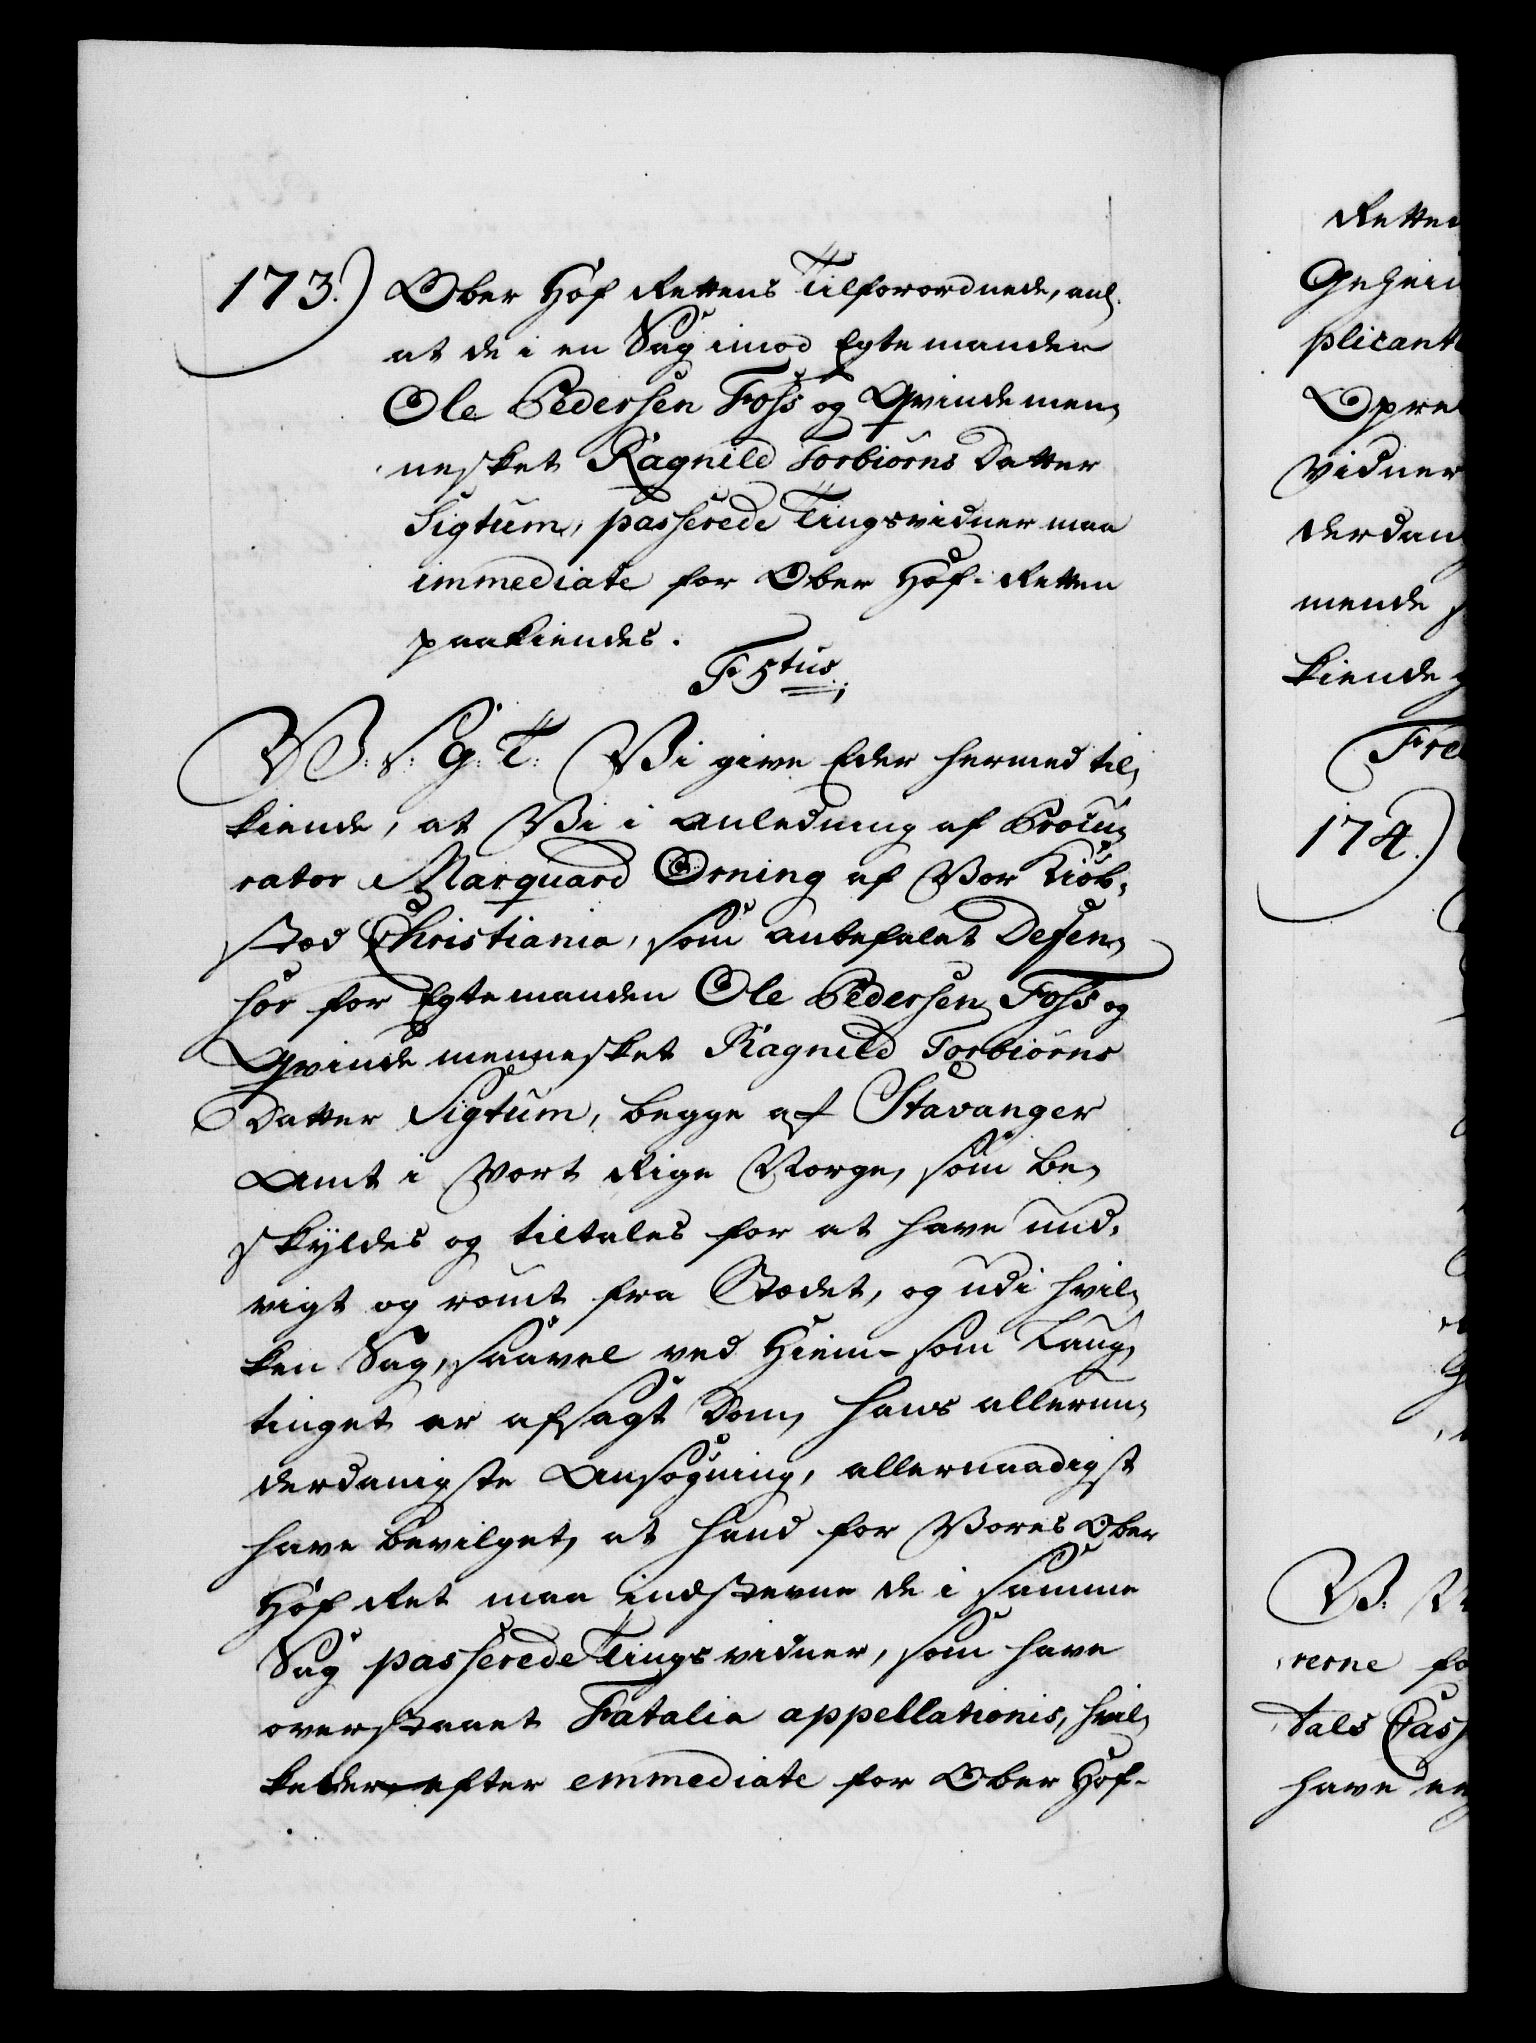 173.) Ober Hof Rettens Tilforordnede, anl.
at de i en Sag imod Egtemanden
Ole Pedersen Foss og Qvindemen-
nesket Ragnild Torbiørns Datter
Sigtum, passerede Tingsvidner maa
immediate for Ober Hof-Retten
paakiendes.
F 5tus.
V: S: G: T: Vi give Eder hermed til-
kiende, at Vi i Anledning af Procu-
rator Marquard Orning af Vor Kiøb-
stad Christiania, som anbefalet Defen-
sor for Egtemanden Ole Pedersen Foss og
Qvindemennesket Ragnild Torbiørns
Datter Sigtum, begge af Stavanger
Amt i Vort Rige Norge, som be-
skyldes og tiltales for at have und-
vigt og rømt fra Stædet, og udi hvil-
ken Sag, saavel ved Hiem- som Laug-
tinget er afsagt Dom, hans allerun-
derdanigste Ansøgning, allernaadigst
have bevilget, at hand for Vores Ober
Hof Ret maa indstævne de i samme
Sag passerede Tingsvidner, som have
overstaaet Fatalia appellationis, hvil-
ke derefter emmediate for Ober Hof-
Retten
plicant
Vidner
derdan
mende
kiende
174.)
rerne
tals
have